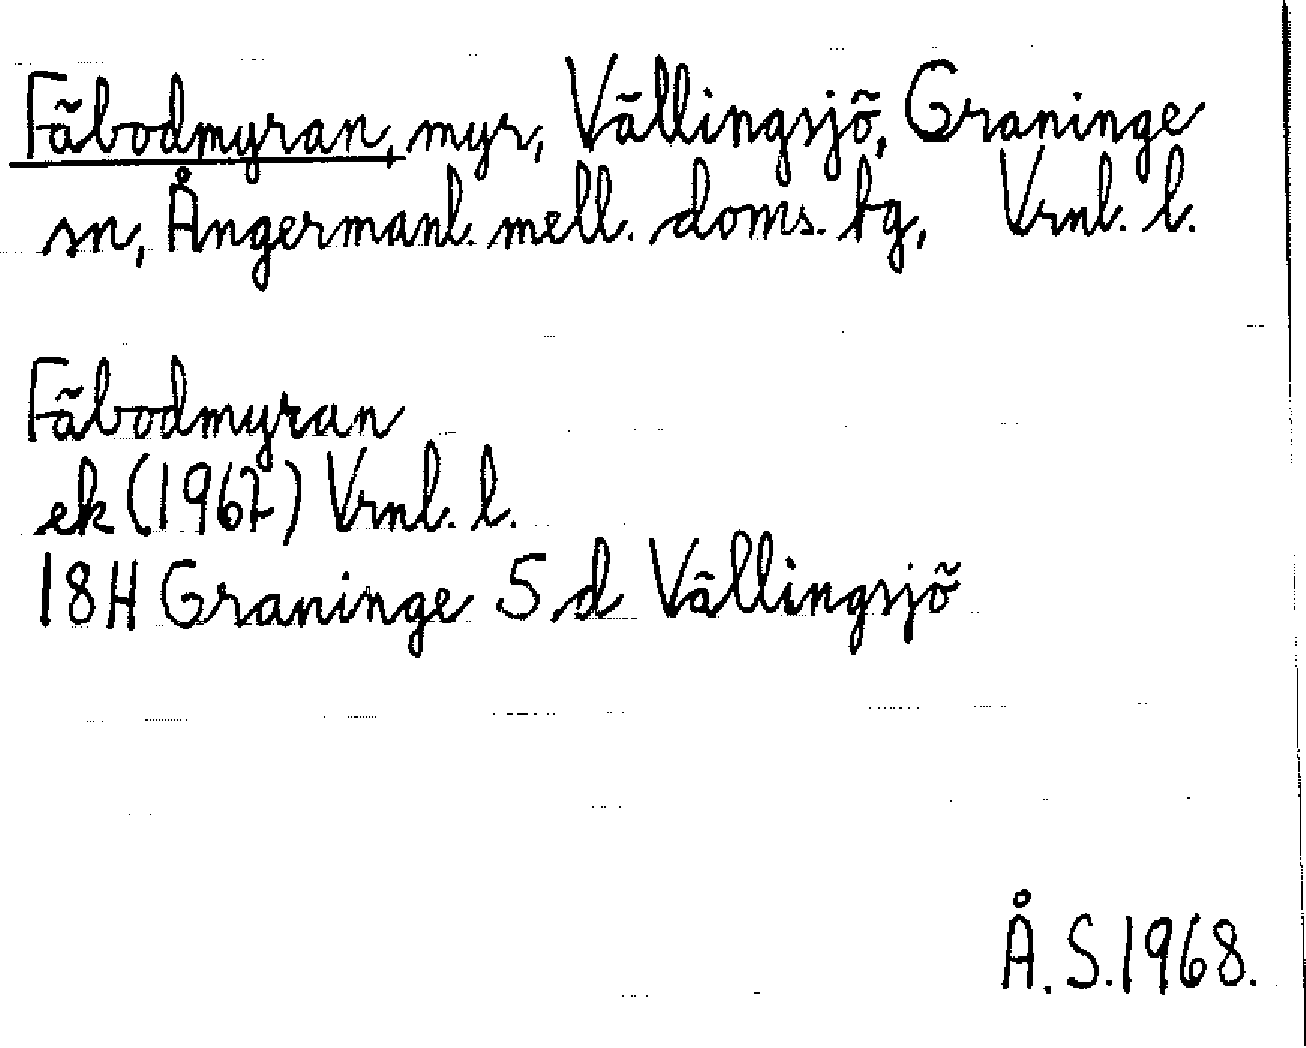 Fäbodmyran, myr, Vällingsjö, Graninge
sn, Ångermanl. mell. doms. tg, Vrnl. l.
Fäbodmyran
ek (1967) Vrnl. l.
18H Graninge S.d Vällingsjö
Å. S. 1968.